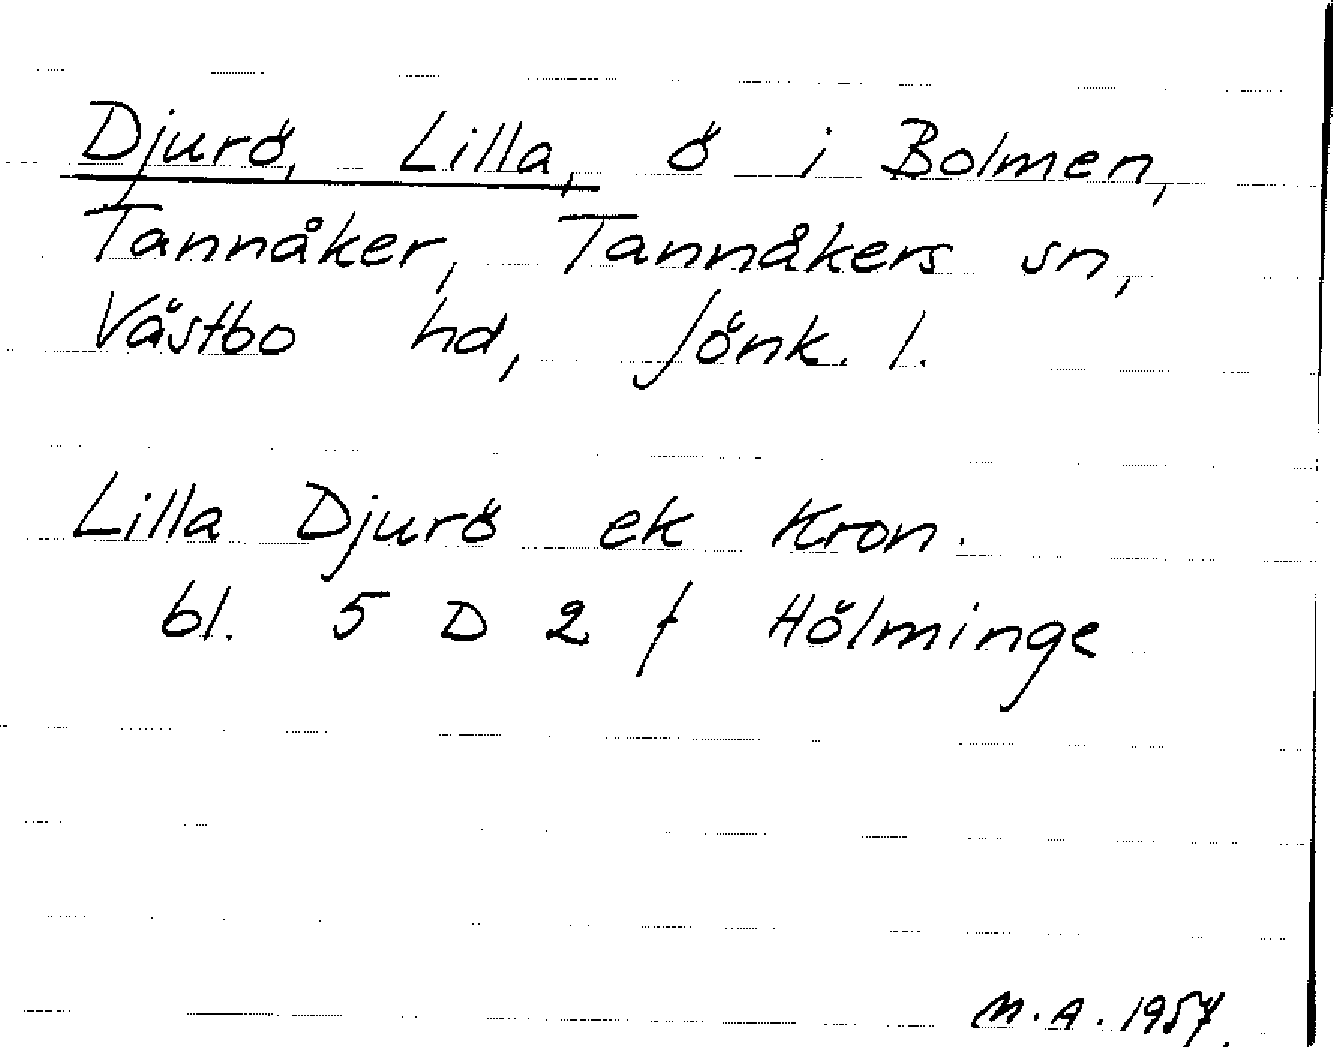 Djurö, Lilla, ö i Bolmen,
Tannåker, Tannåkers sn,
Västbo hd, Jönk. l.
Lilla Djurö ek Kron.
bl. 5 D 2 f Hölminge
M.A. 1957.